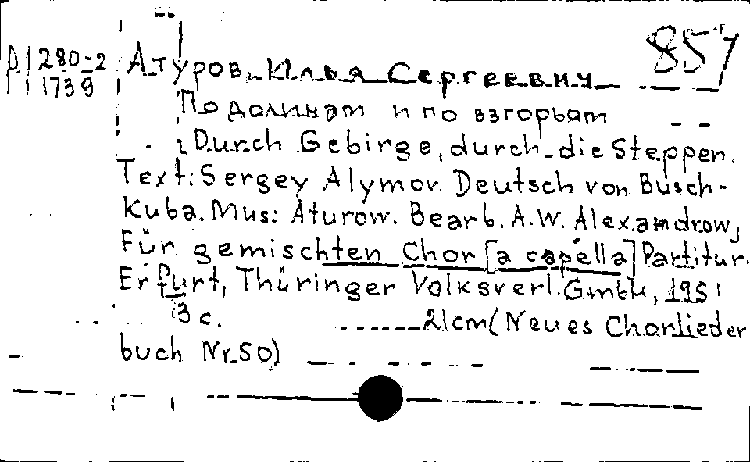 857
Д 280-2 Атуров, Илья Сергеевич
1739
По долинам и по взгорьям
Durch Gebirge, durch die Steppen.
Text: Sergey Alymov. Deutsch von Busch-
Kuba. Mus: Aturow. Bearb. A.W. Alexandrow,
Für gemischten Chor [a capella] Partitur.
Erfurt, Thüringer Volksverl. GmbH, 1951
3 с. 21cm (Neues Chorlieder
buch Nr. 50)